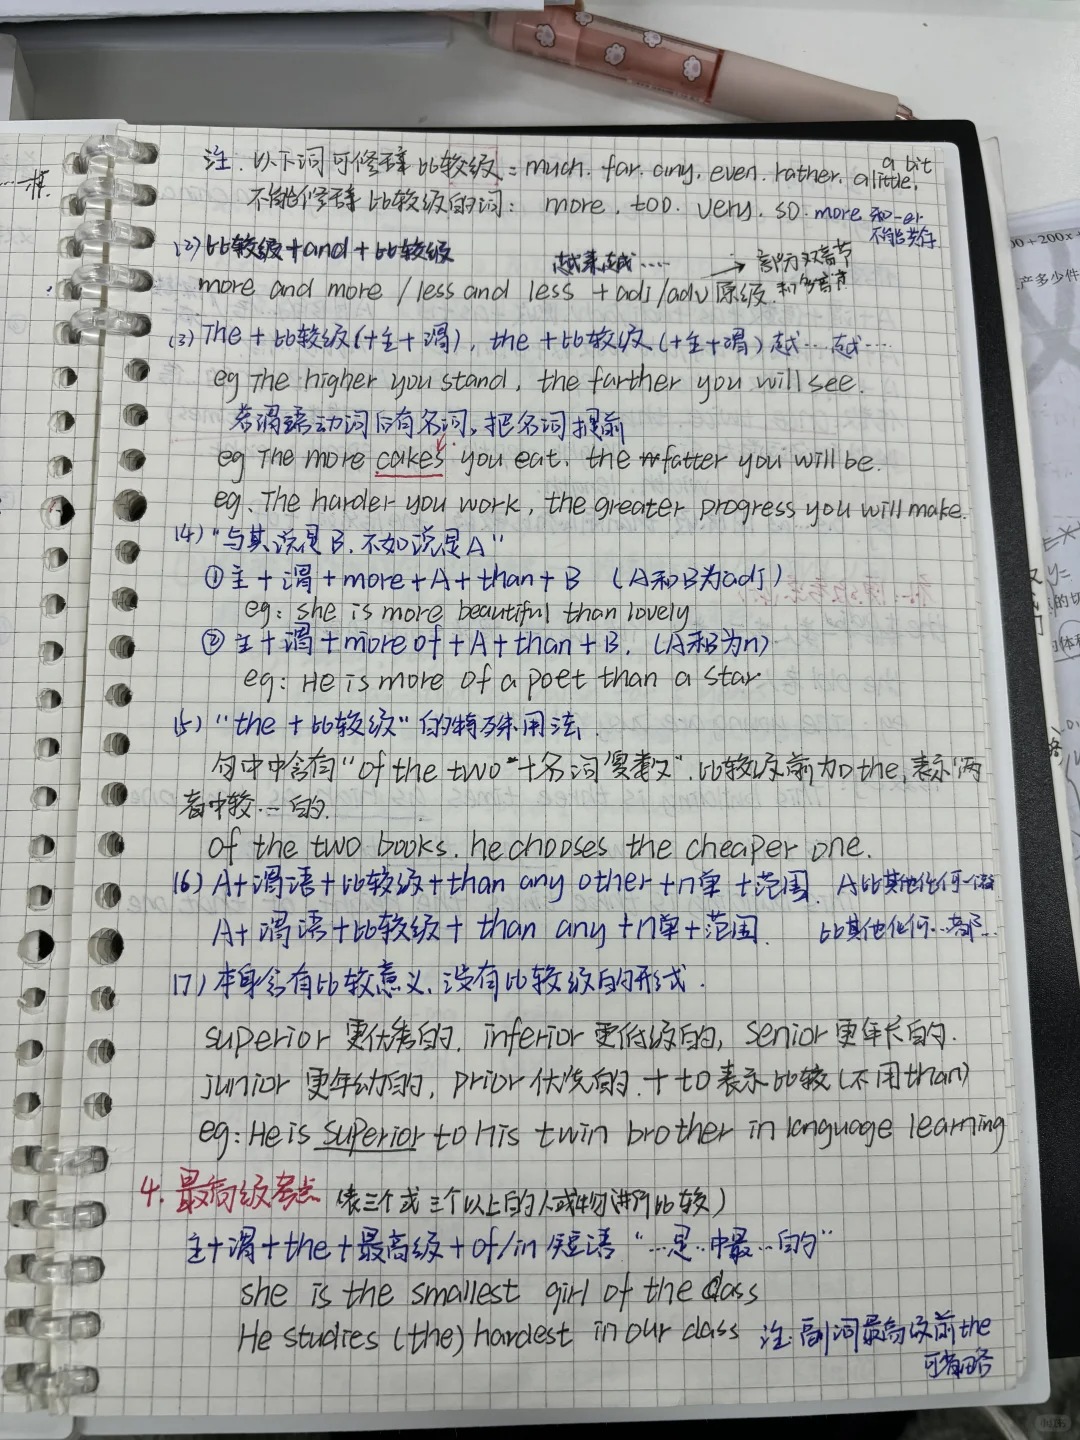 注: 以下词可修辞比较级: much. far. any. even. rather. a little. a bit
不能修辞比较级的词: more. too. very. so. more 和-er
不能共存
(2) 比较级+and+比较级 越来越…… → 部分双音节
more and more / less and less + adj/adv 原级. 和多音节
(3) The + 比较级(+主+谓), the + 比较级 (+主+谓) 越… 越…
eg The higher you stand, the farther you will see.
若谓语动词后有名词, 把名词提前
eg The more cakes you eat. the fatter you will be.
eg. The harder you work, the greater progress you will make.
(4) "与其说是B. 不如说是A"
① 主+谓+more+A+than+B (A和B为adj)
eg: she is more beautiful than lovely
② 主+谓+more of+A+than+B. (A和B为n)
eg: He is more of a poet than a star
(5) "the + 比较级" 的特殊用法.
句中中含有"of the two"+名词"复数". 比较级前加the, 表示"两
者中较…的.
of the two books. he chooses the cheaper one.
(6) A+谓语+比较级+than any other+n单+范围. A比其他任何一个
A+谓语+比较级+than any+n单+范围. 比其他任何…都…
(7) 本身含有比较意义, 没有比较级的形式.
superior 更优秀的, inferior 更低级的, senior 更年长的.
junior 更年幼的, prior 优先的. + to 表示比较 (不用than)
eg: He is superior to his twin brother in language learning
4. 最高级考点 (表三个或三个以上的人或物进行比较)
主+谓+the+最高级+of/in 短语 "…是…中最…的"
she is the smallest girl of the class
He studies (the) hardest in our class 注: 副词最高级前the
可省略
00+200x+
产多少件
的切